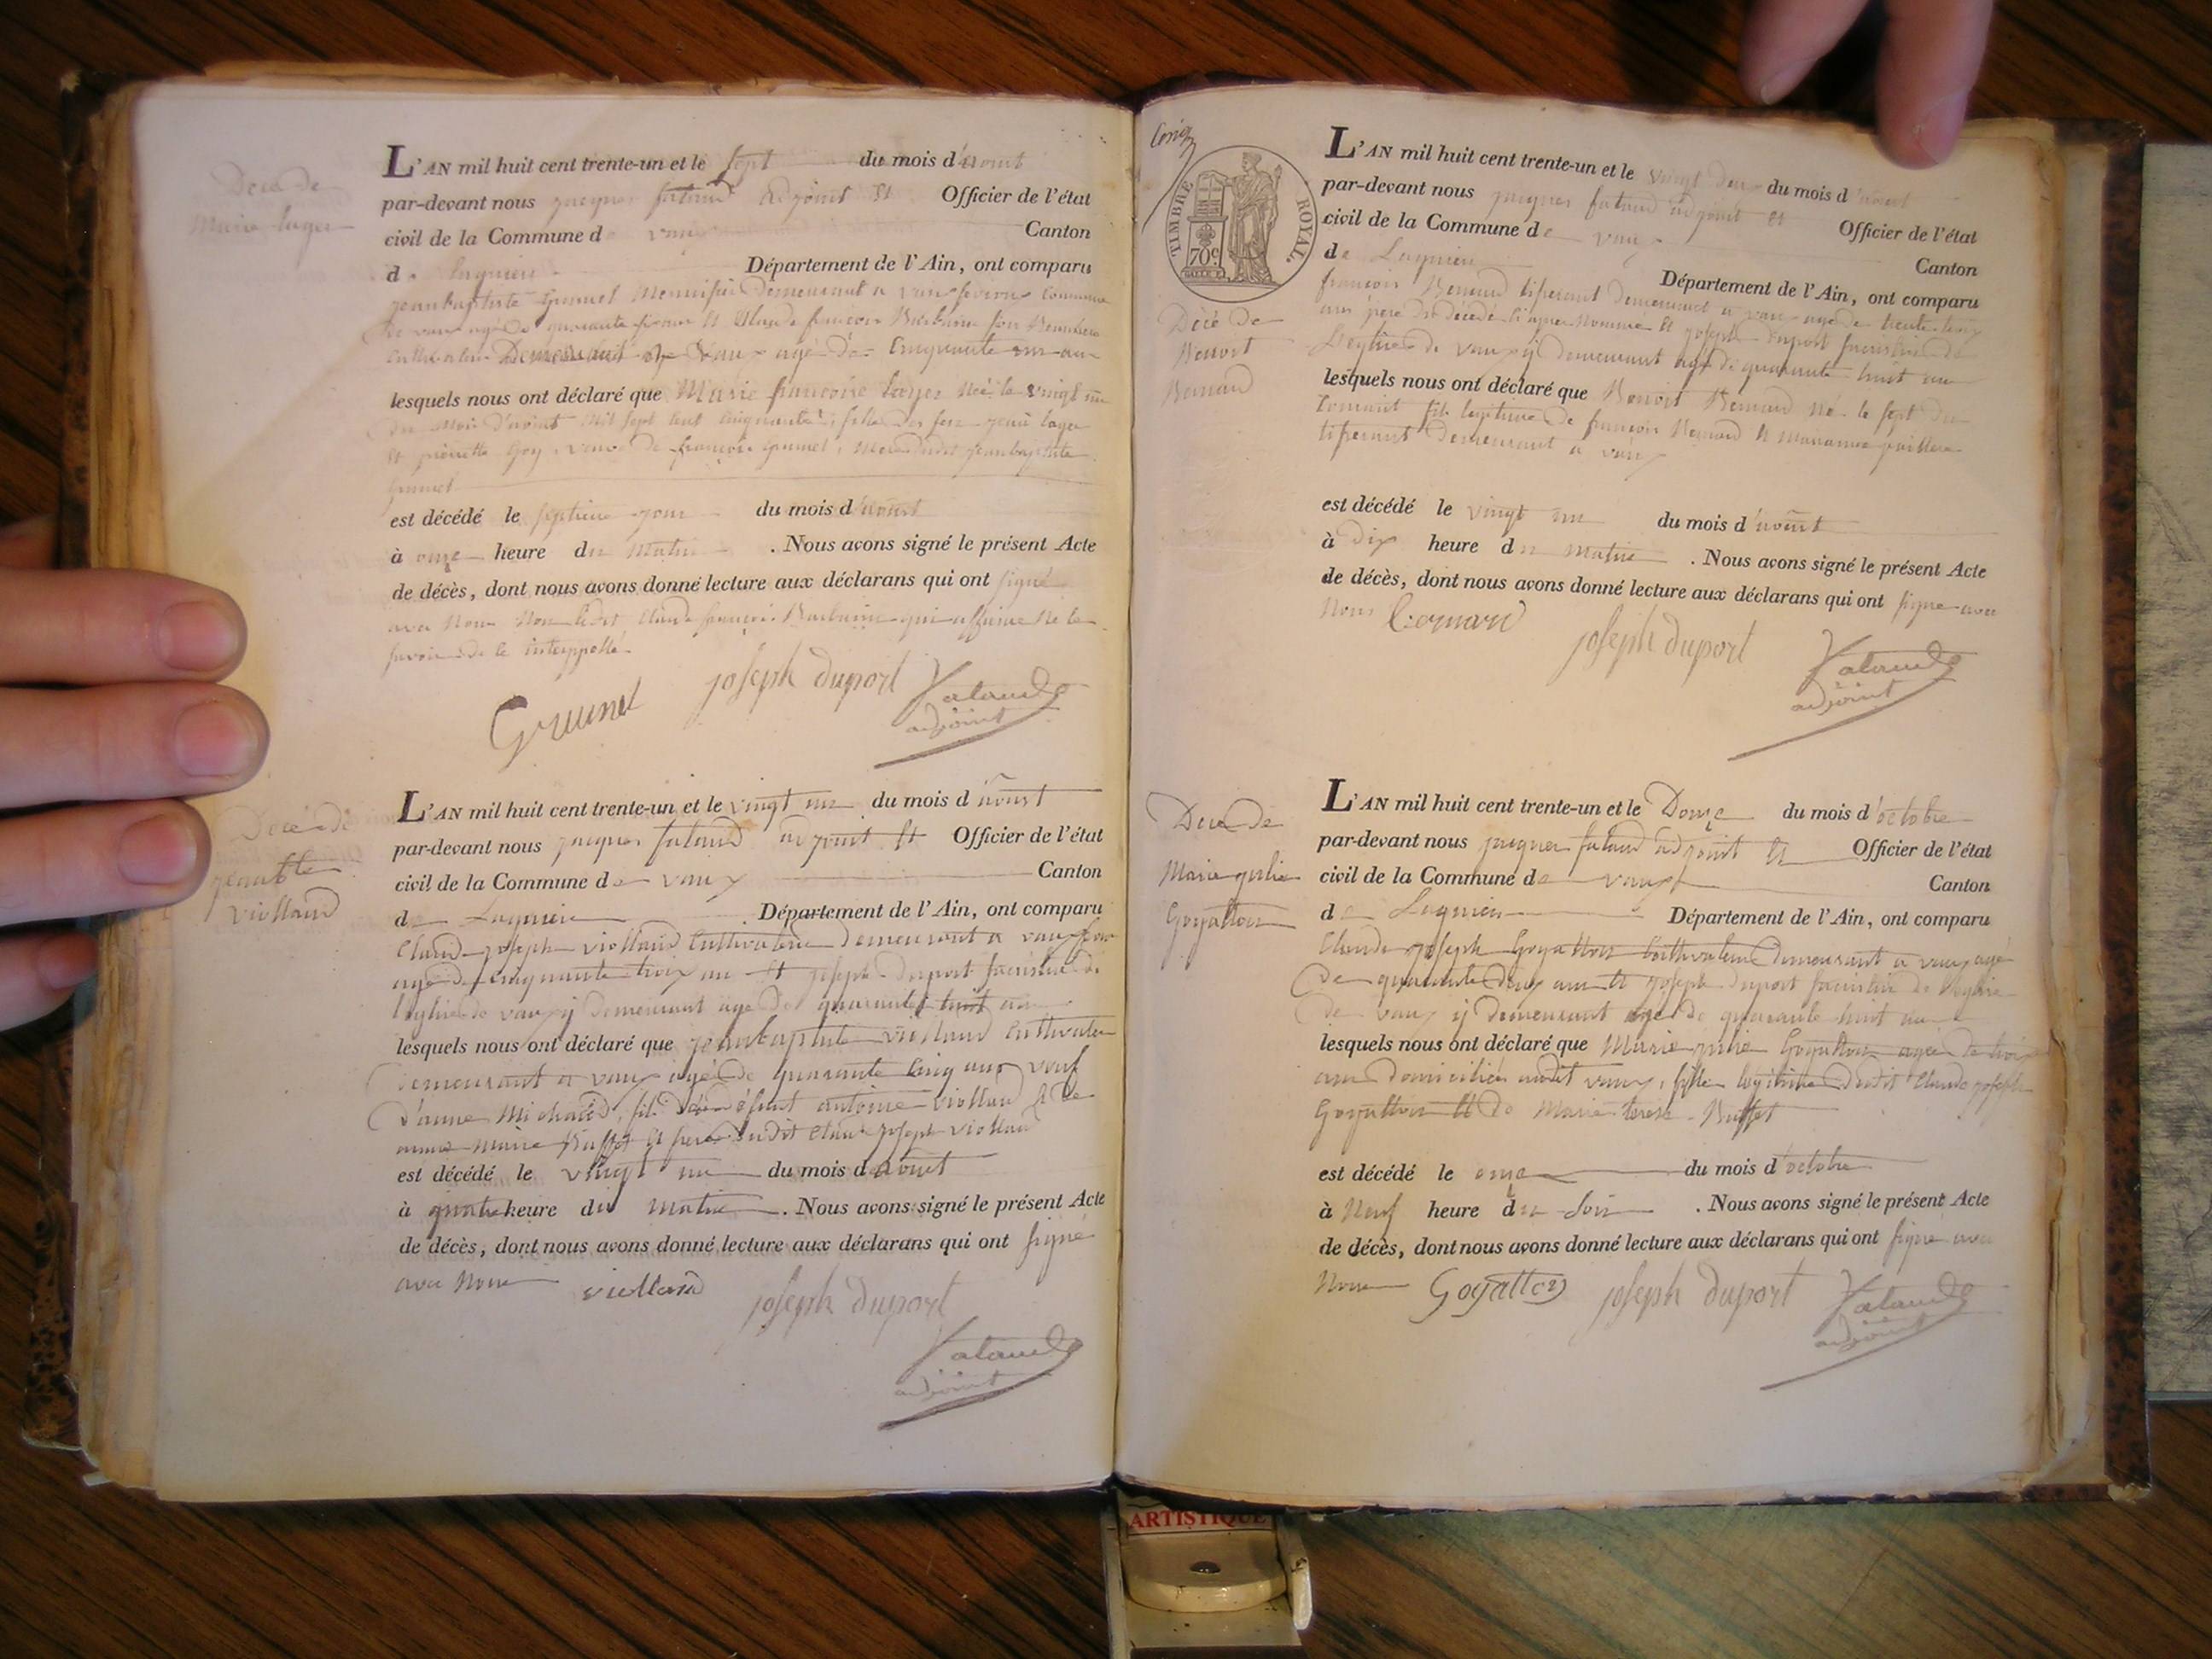 Décé de
Marie lager
L'AN mil huit cent trente-un et le sept du mois d'aoust
par-devant nous jacques fataud adjoint et Officier de l'état
civil de la Commune de vaux Canton
de lagnieu Département de l'Ain, ont comparu
jeanbaptiste Grumel demeurant a vaux commune
de vaux agé de quarante et Claude françois Barbarin son
Demeurant a Vaux agé de Cinquante un an
lesquels nous ont déclaré que Marie francoise lager Née le vingt un
du Mois d'aoust Mil sept cent cinquante, fille des feu jean lager
et pierrette Goy, veuve de françois Grumel, Mere dudit jeanbaptiste
Grumel
est décédé le septieme jour du mois d'aoust
à onze heure du Matin . Nous avons signé le présent Acte
de décès, dont nous avons donné lecture aux déclarans qui ont signé
avec Nous Non ledit Claude françois Barbarin qui affirme Ne le
savoir de ce interppellé
Grumel joseph duport fataud
adjoint
Décé de
jean bte
Violland
L'AN mil huit cent trente-un et le vingt un du mois d'aoust
par-devant nous jacques fataud adjoint et Officier de l'état
civil de la Commune de vaux Canton
de Lagnieu Département de l'Ain, ont comparu
Claude joseph violland Cultivateur demeurant a vaux
agé de cinquante troix an et joseph duport sacristin de
l'eglise de vaux y demeurant agé de quarante huit an
lesquels nous ont déclaré que jeanbaptiste violland Cultivateur
demeurant a vaux agé de quarante cinq ans veuf
d'anne Michaud, fils defunt antoine violland et de
anne Marie Buffet et frere dudit Claude joseph violland
est décédé le vingt un du mois d'aoust
à quatre heure du matin . Nous avons signé le présent Acte
de décès, dont nous avons donné lecture aux déclarans qui ont signé
avec Nous violland joseph duport
fataud
adjoint
TIMBRE ROYAL.
70c.
Décé de
Benoit
Bernard
L'AN mil huit cent trente-un et le vingt deux du mois d'aoust
par-devant nous jacques fataud adjoint et Officier de l'état
civil de la Commune de vaux Canton
de Lagnieu Département de l'Ain, ont comparu
françois Bernard tiserant demeurant a vaux agé de trente
ans pere du décédé ci apres Nommé et joseph duport sacristin de
L'eglise de vaux y demeurant agé de quarante huit an
lesquels nous ont déclaré que Benoit Bernard Né le sept du
Courant fils legitime de francois Bernard et Marianne
tiserant demeurant a vaux
est décédé le vingt un du mois d'aoust
à dix heure du matin . Nous avons signé le présent Acte
de décès, dont nous avons donné lecture aux déclarans qui ont signé avec
Nous Bernard joseph duport fataud
adjoint
Décé de
Marie julie
Goyatton
L'AN mil huit cent trente-un et le Douze du mois d'octobre
par-devant nous jacques fataud adjoint et Officier de l'état
civil de la Commune de vaux Canton
de Lagnieu Département de l'Ain, ont comparu
Claude joseph Goyatton Cultivateur demeurant a vaux agé
de quarante deux an et joseph duport sacristin de l'eglise
de vaux y demeurant agé de quarante huit an
lesquels nous ont déclaré que Marie julie Goyatton agée de troix
an domiciliée audit vaux, fille legitime dudit Claude joseph
Goyatton et de Marie terese Buffet
est décédé le onze du mois d'octobre
à Neuf heure du soir . Nous avons signé le présent Acte
de décès, dont nous avons donné lecture aux déclarans qui ont signé avec
Nous Goyatton joseph duport fataud
adjoint
ARTISTIQUE